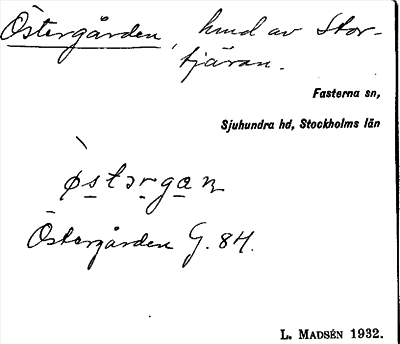 Östergården, hmd av Stor-
tjäran.
Fasterna sn,
Sjuhundra hd, Stockholms län
`østərgan
Östergården G. 84.
L. MADSÉN 1932.